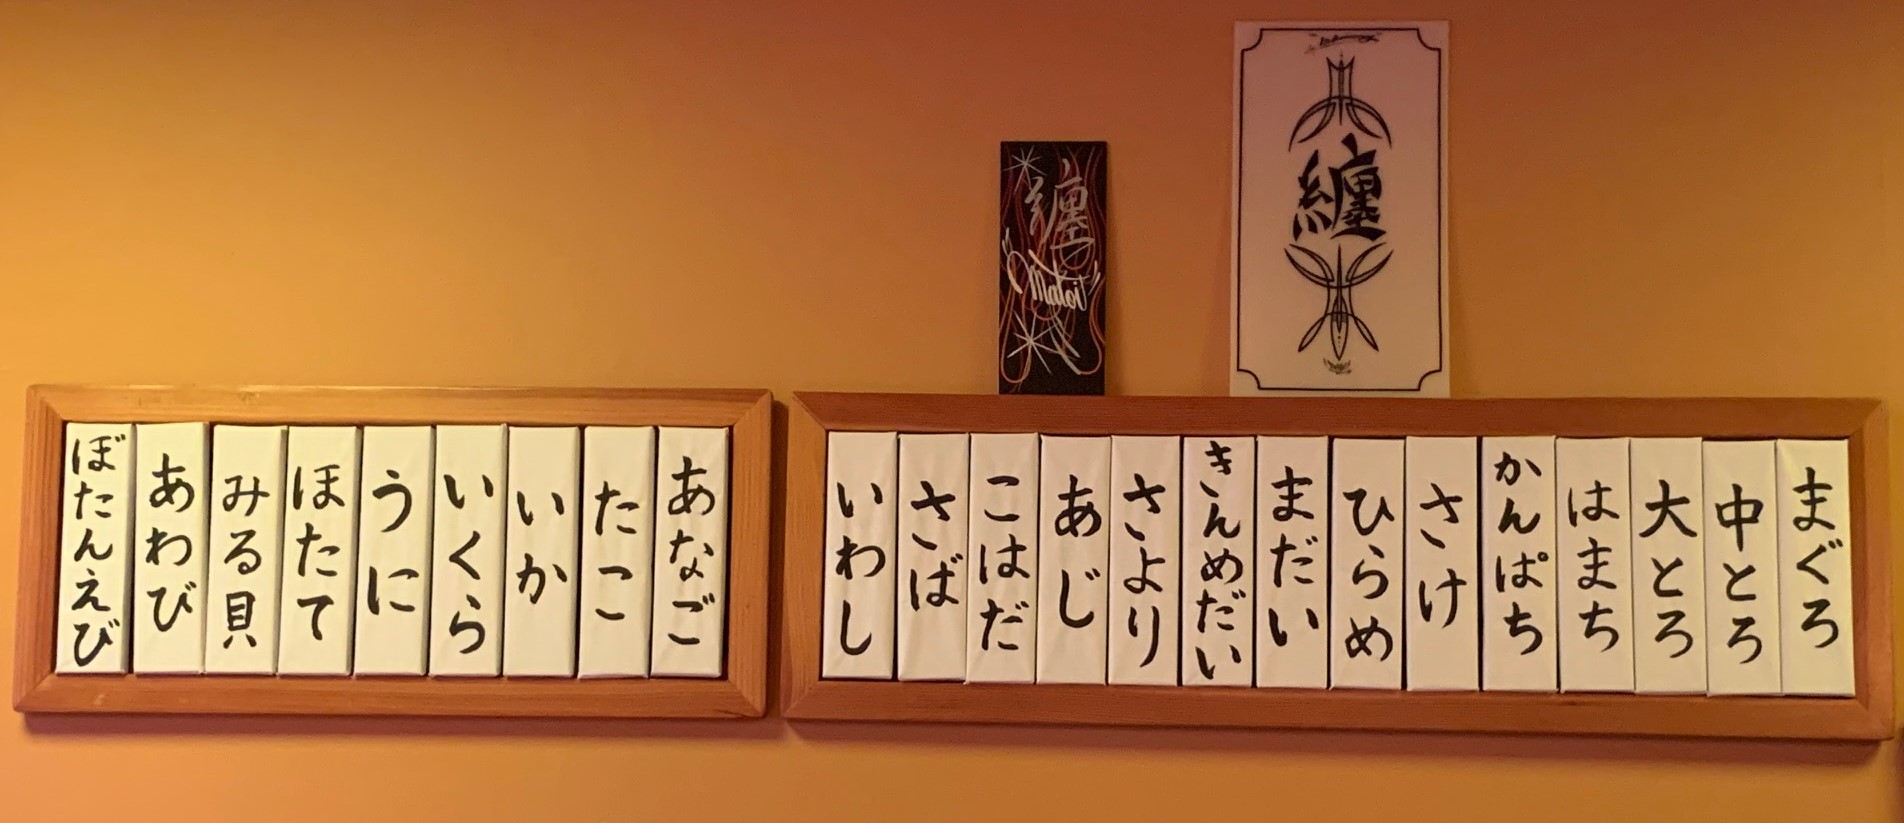 纏
纏
"Matoi"
まぐろ
中とろ
大とろ
はまち
かんぱち
さけ
ひらめ
まだい
きんめだい
さより
あじ
こはだ
さば
いわし
あなご
たこ
いか
いくら
うに
ほたて
みる貝
あわび
ぼたんえび